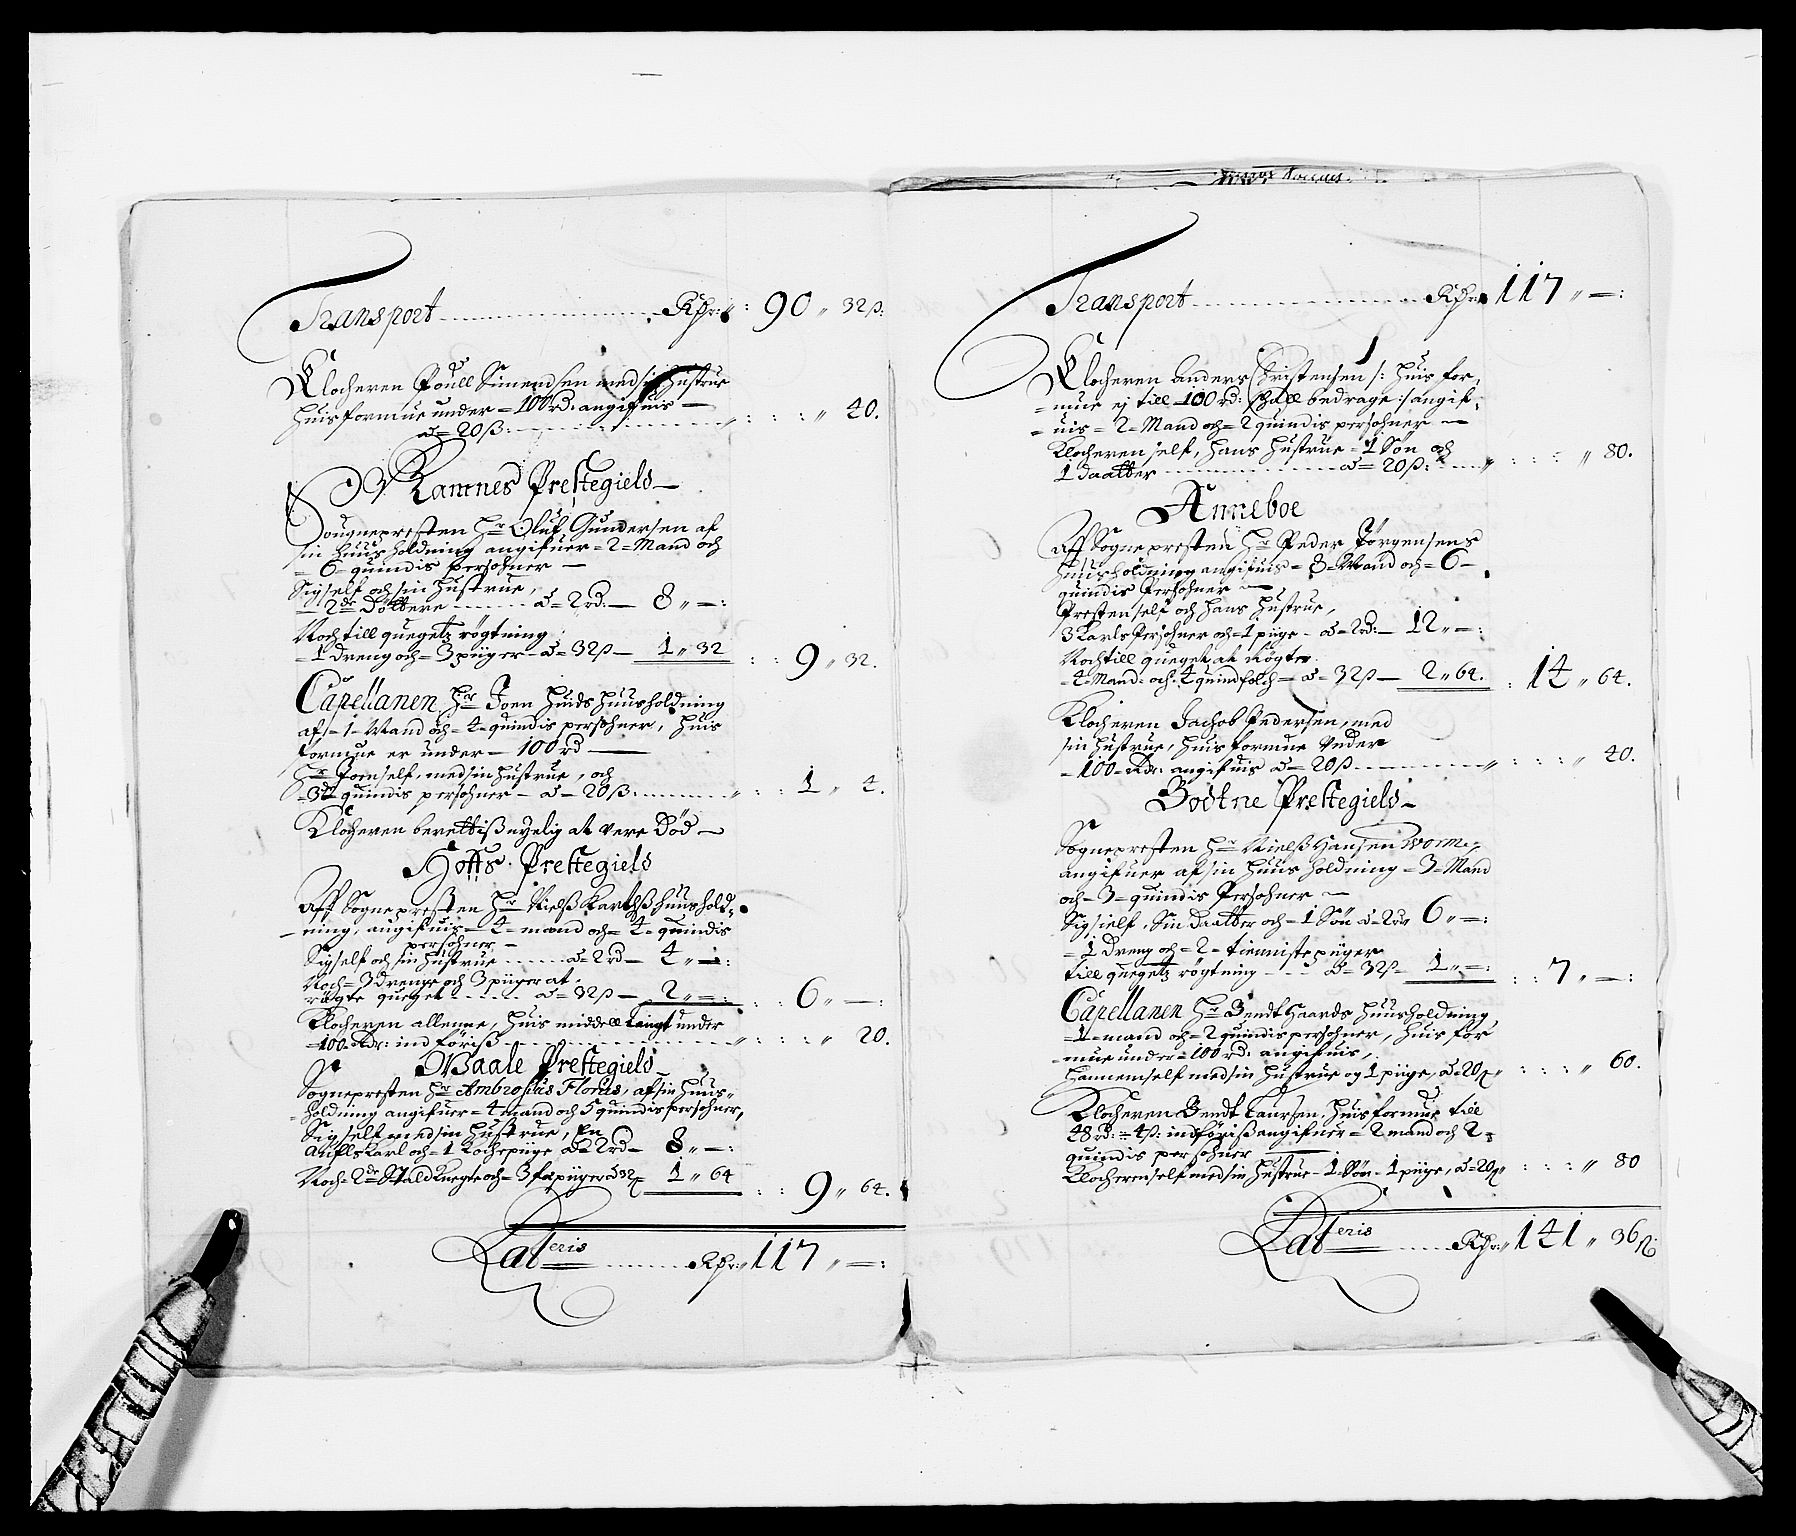 Transport ............ Rdr: 90 „ 32ß.
Klocheren Poull Simensen med sin hustrue
huis formue under = 100 rd: angifuis —
à = 20ß: „ : : : „ 40.
Ramnes Prestegield —
Sougnepresten Hr Oluf Gundersen af
sin huusholdning angifuer = 2 = Mand och
= 6 = quindis persohner —
Sig self och sin hustrue,
— 2de Döttere ...... à = 2 rd: — 8 „ — :
Noch till quegetz rögtning
= 1 dreng och = 3 piiger — à = 32ß — 1 „ 32 : : 9 „ 32.
Capellanen Hr Joen huusholdning
af = 1 = Mand och = 4 = quindis persohner, huis
formue er under — 100 rd —
Hr Joen self, med sin hustrue, och
= 3de quindis persohner — à — 20ß: „ : : 1 „ 4.
Klocheren berettiß nyelig at vere Död —
Hoffs Prestegield
Aff Sognepresten Hr Nielß huushold-
ning, angifuis = 4 = mand och = 4 = quindis
persohner —
Sig self och sin hustrue ...... à = 2 rd — 4 „ — :
Noch = 3 drenge och 3 piiger at
rögte queget ...... à = 32ß — 2 „ — : : : 6 „ — :
Klocheren allenne, huis middell langt under
= 100 Rdr: ind föriß „ : : : „ 20.
Waale Prestegield —
Sognepresten Hr Ambrosius Florus, af sin huus-
holdning angifuer = 4 mand och 5 quindis persohner,
Sig self med sin hustrue, En
Aufls Karl och = 1 Kochepiige à = 2 rd — 8 „ — :
Noch = 2de Staldknegte och = 3 piiger à 32ß 1 „ 64 : : 9 „ 64.
Lateris ........ Rdr: 117 „ — :
Transport ............ Rdr 117 „ — :
Klocheren Anders Christensen /: huis for-
= mue ej till 100 rd: schall bedrage :/ angif-
= uis = 2 = Mand och = 2 quindis persohner —
Klocheren self, hans hustrue = 1 Sön och
1 daatter ............ à = 20ß: „ : : : „ 80.
Anneboe
Aff Sognepresten Hr Peder Jörgensens
huusholdning angifuis = 8 = Mand och = 6 =
quindis Persohner —
Presten self och hans hustrue,
3 Karls Persohner och = 1 piige — à = 2rd: — 12 „ — :
Noch till queget at Rögte
= 4 = Mand: och = 4 quindfolch — à = 32ß — 2 „ 64. : 14 „ 64.
Klocheren Jachob Pedersen, med
sin hustrue, huis formue under
= 100 = Rdr: angifuis à = 20ß „ : : : „ 40.
Bodtne Prestegield —
Sognepresten Hr Nielß Hansen Worme,
angifuer af sin huus holdning = 3 = Mand
och = 3 = quindis Persohner —
Sig sielf, Sin daatter och = 1 Sön à = 2 rdr 6 „ — :
= 1 dreng och = 2 = tienniste piiger
till quegetz rögtning ... à = 32ß — 1 „ — : : : 7 „ — :
Capellanen Hr Bendt Haards huusholdning
= 1 = mand och = 2 quindis persohner, huis for
mue under = 100 rd: angifuis,
hannem self med sin hustrue og 1 piige, à = 20ß „ : : : „ 60.
Klocheren Bendt Laursen, huis formue till
48 rd: = 4ß: indföriß angifuer = 2 mand och 2 =
quindis persohner —
Klocheren self med sin hustrue — 1 Sön — 1 piige, à = 20ß „ : : : „ 80
Lateris ...... Rdr: 141 „ 36ß: